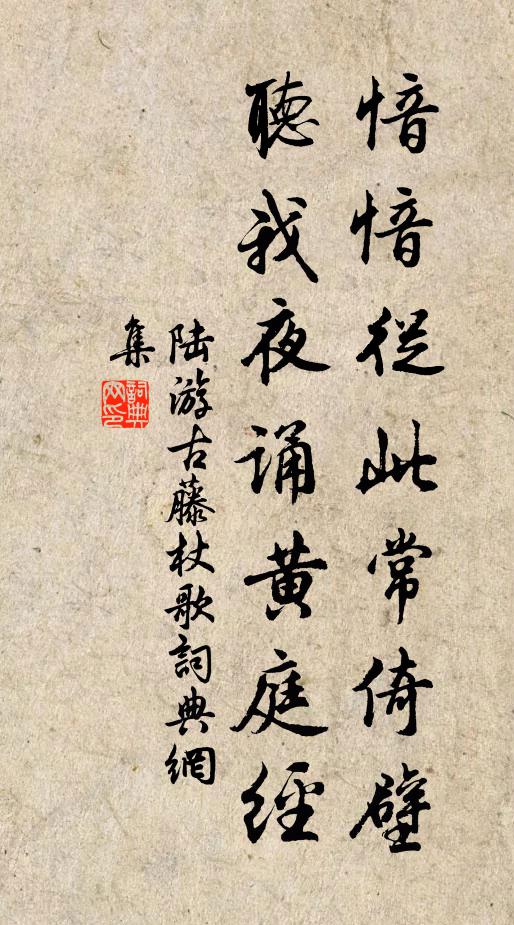 愔愔從此常倚壁
聽我夜誦黄庭經
陸游古藤杖歌詞典網
集
詞典
网印